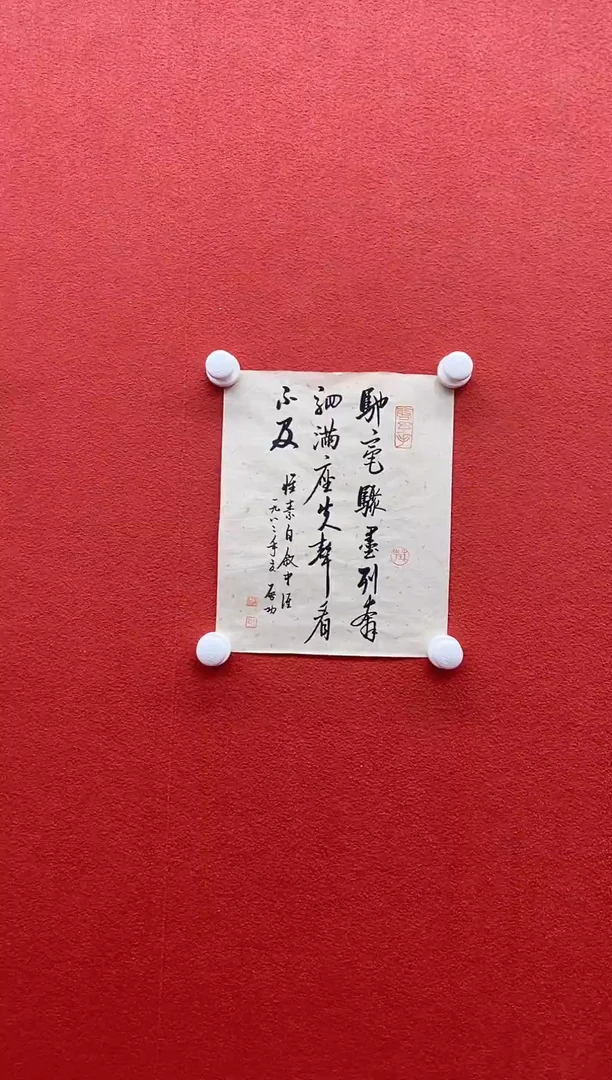 馳毫驟墨列奔
駟滿座失聲看
不及
懷素自叙中語
一九八 年夏 啟功